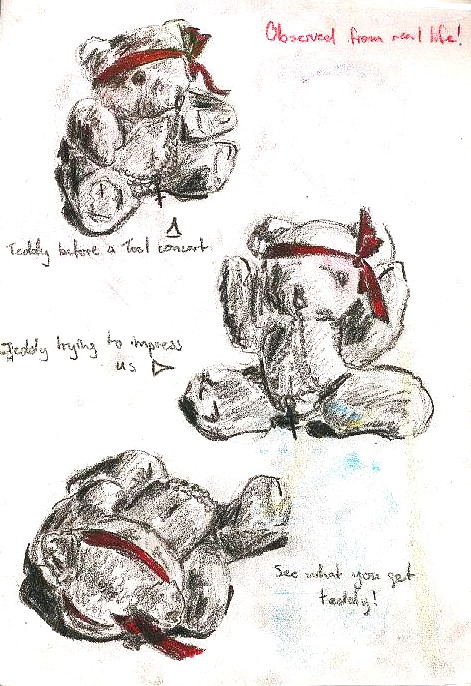 Observed from real life!
Teddy before a Tool concert
Teddy trying to impress
us
See what you get
teddy!